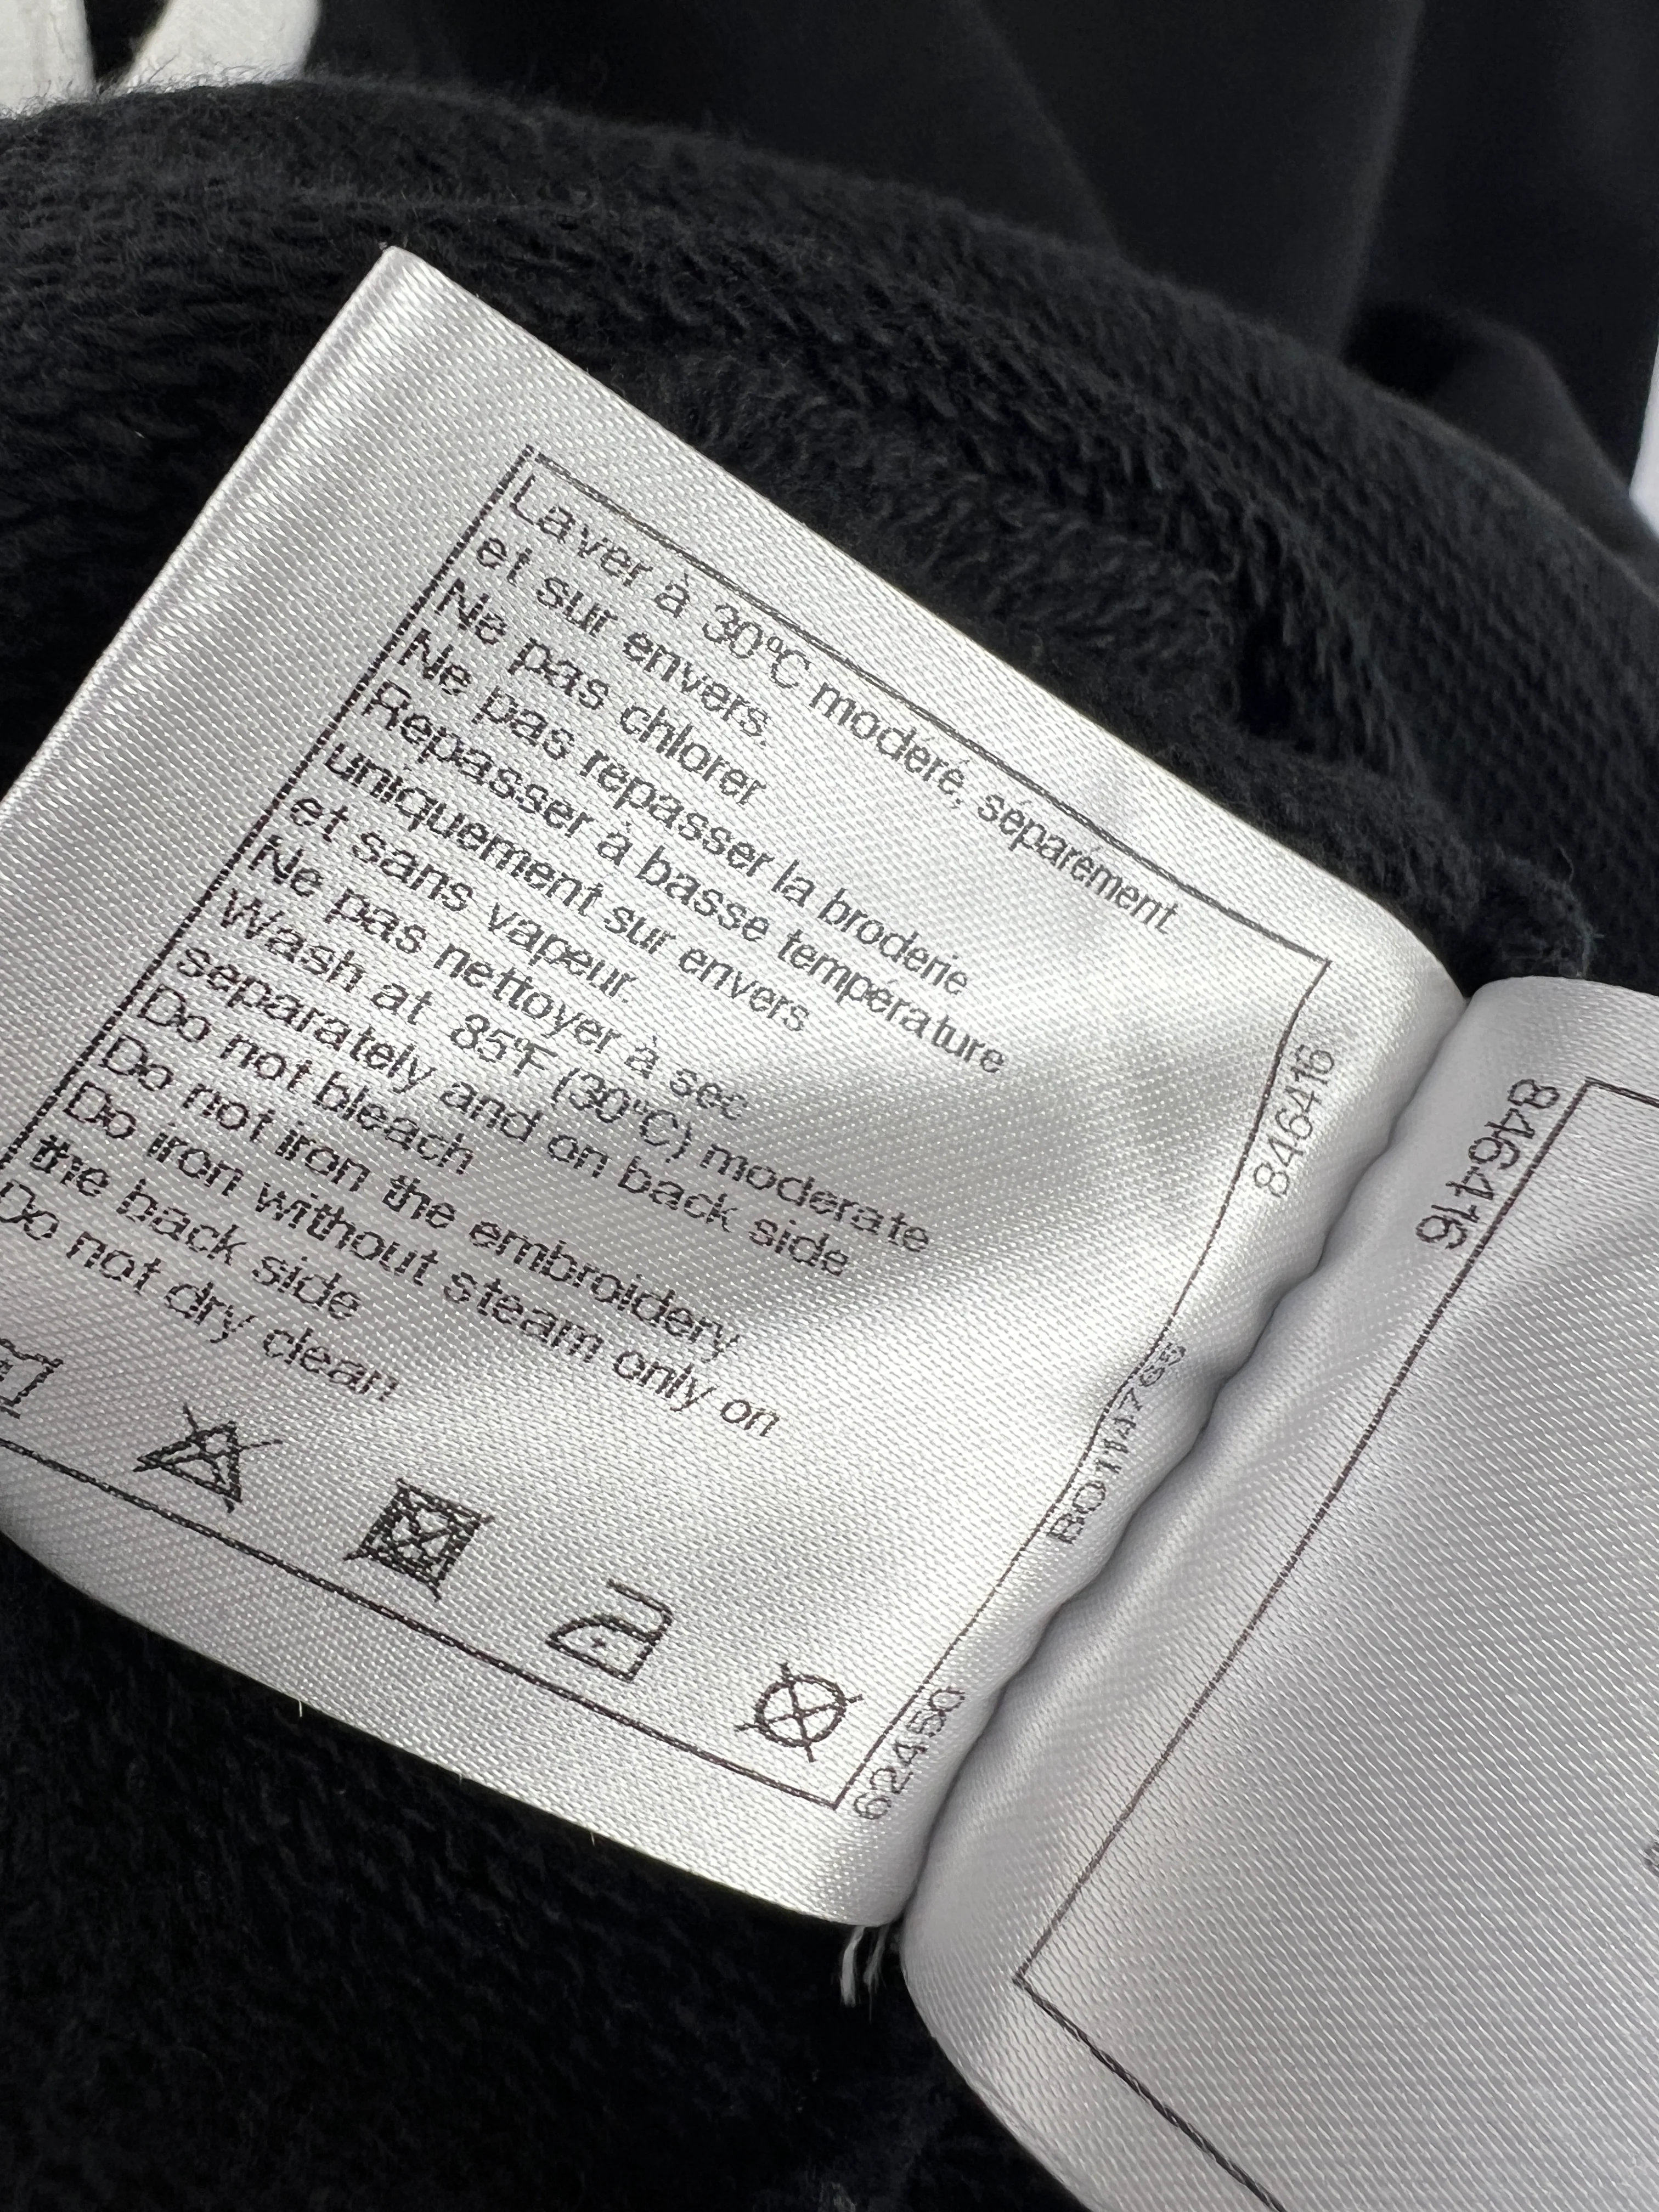 Laver à 30°C modéré, séparément
et sur envers.
Ne pas chlorer
Ne pas repasser la broderie
Repasser à basse température
uniquement sur envers
et sans vapeur.
Ne pas nettoyer à sec
Wash at 85°F (30°C) moderate
separately and on back side
Do not bleach
Do not iron the embroidery
Do iron without steam only on
the back side
Do not dry clean
846416
BO114765
62450
846416